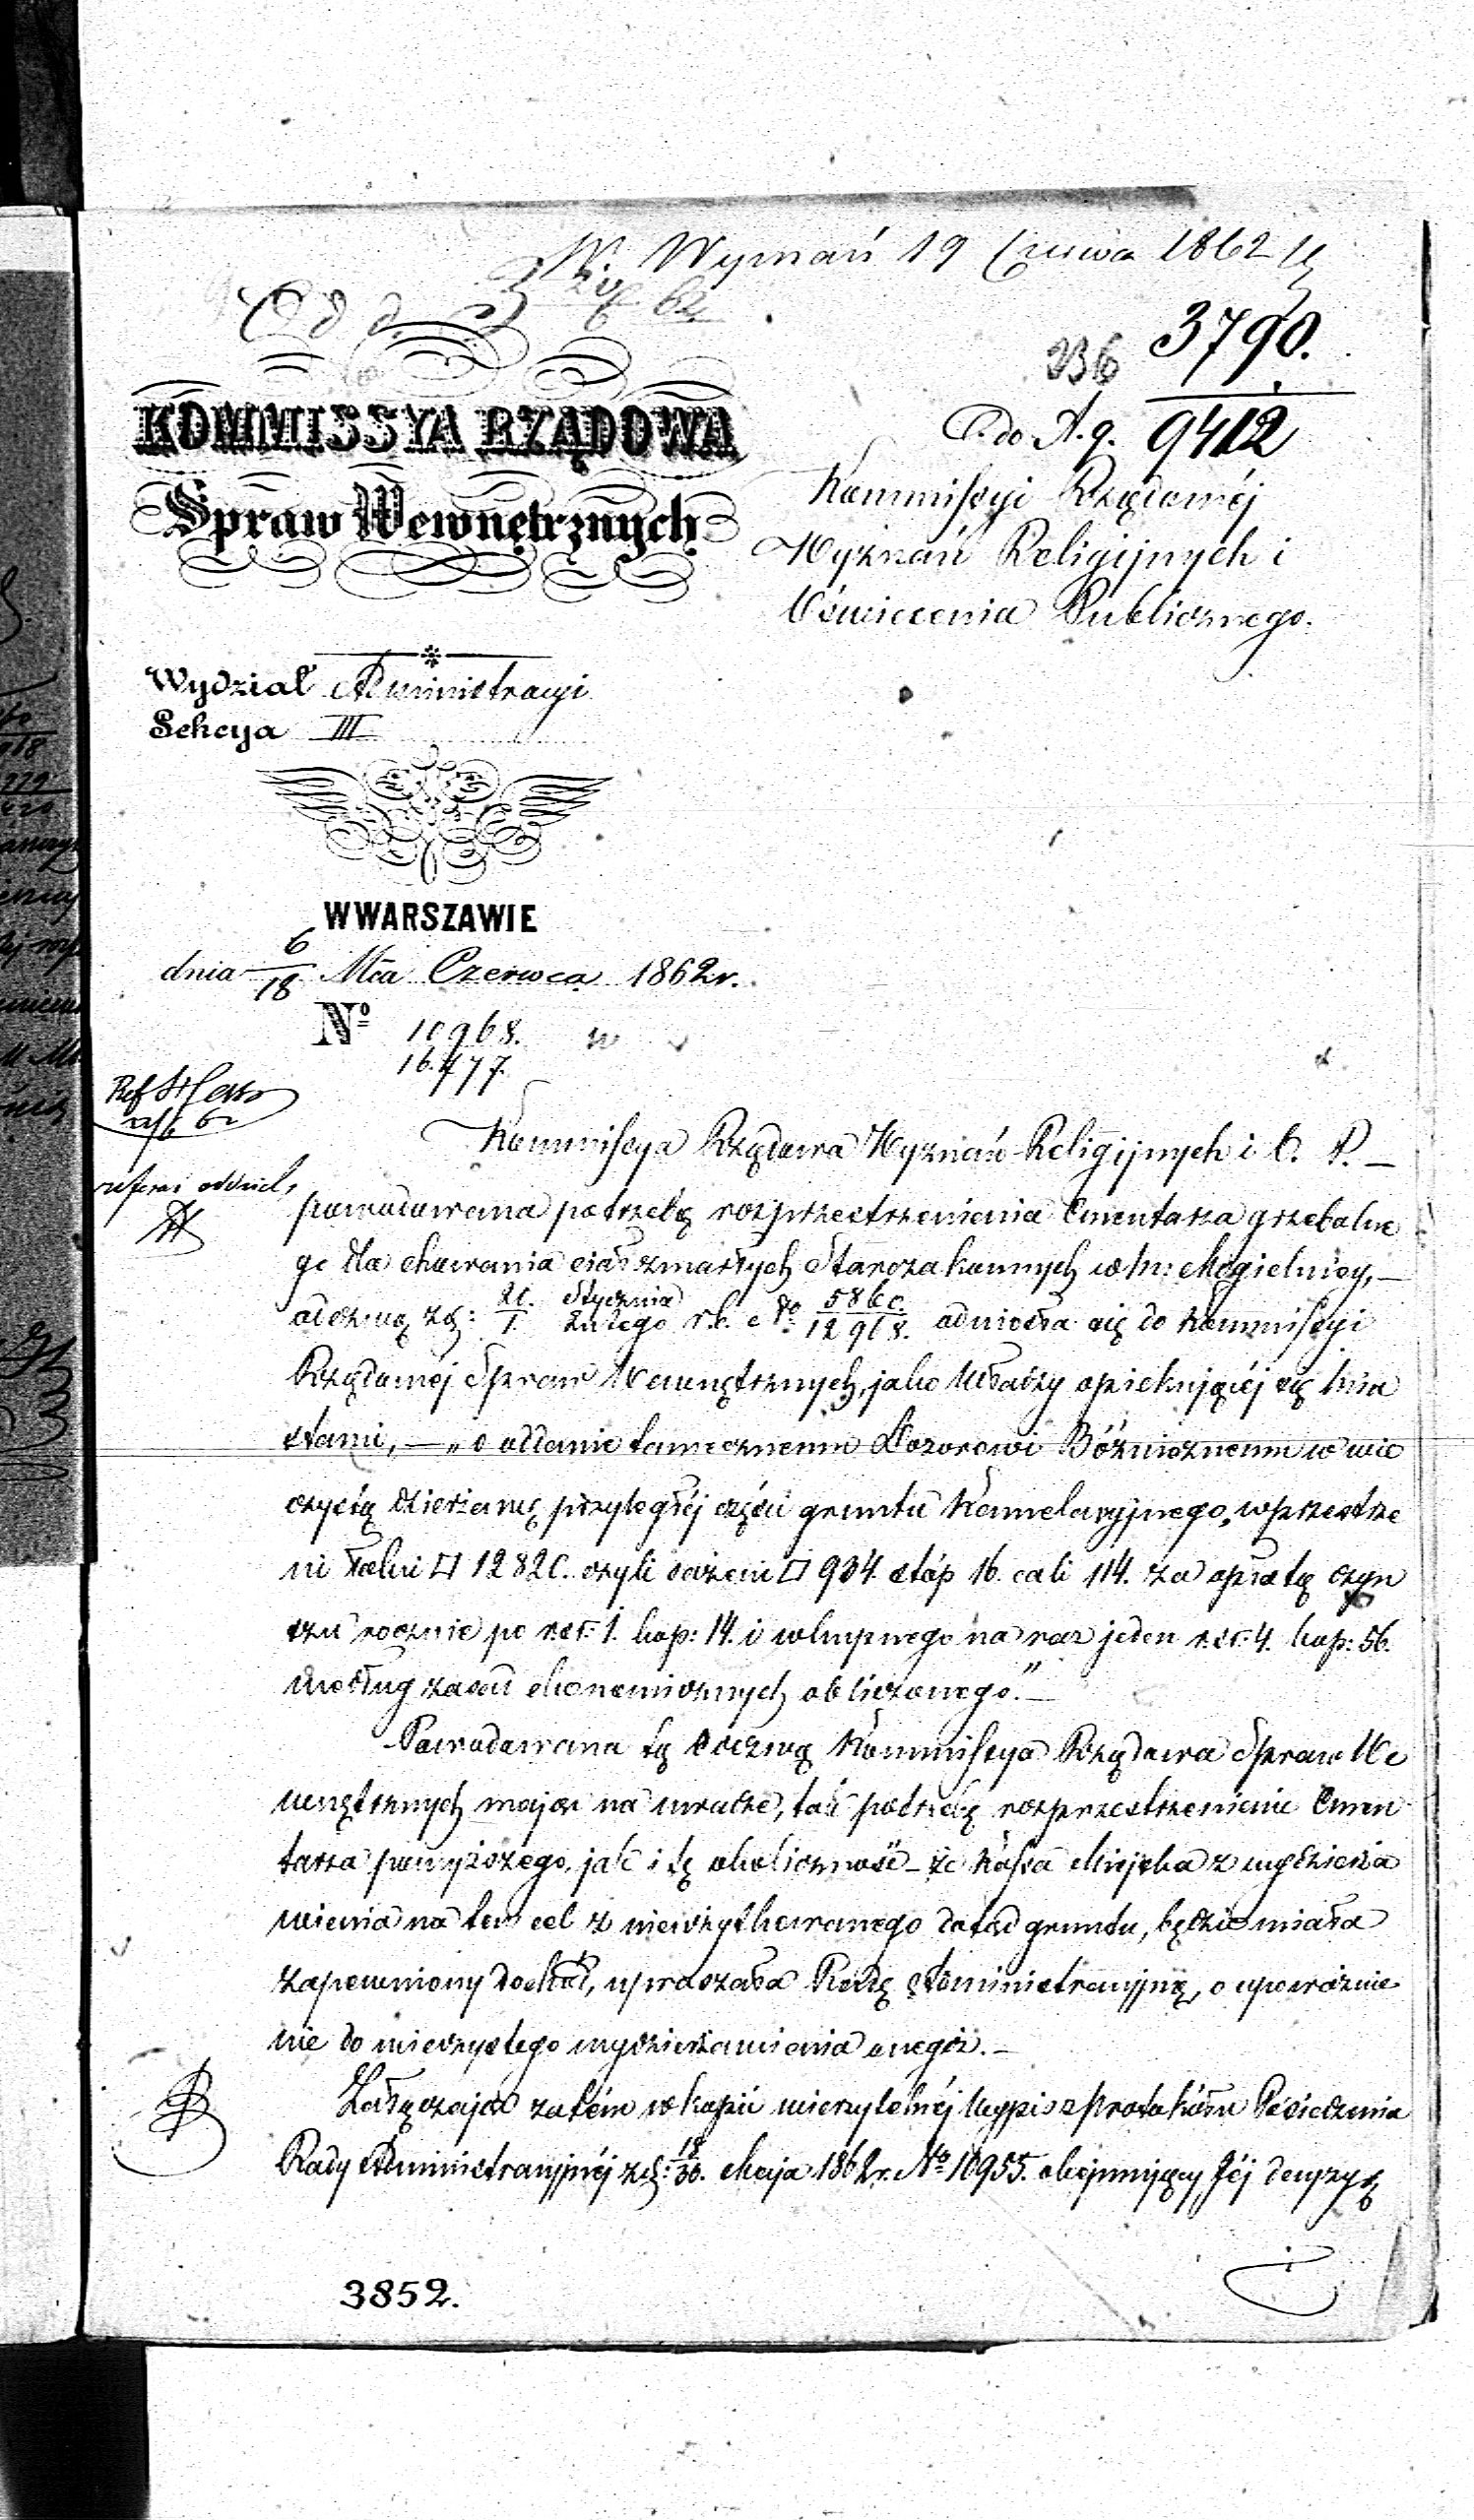 W. Wyznań 19 Czerwca 1862
3790.
236
P. do A. g. 9412
KOMMISSYA RZĄDOWA
Spraw Wewnętrznych
Kommissyi Rządowéj
Wyznań Religijnych i
Oświecenia Publicznego.
Wydział Administracyi
Sekcya III
W WARSZAWIE
dnia 6/18 Mca Czerwca 1862 r.
No 10968.
16.477.
Ref
Kommissya Rządowa Wyznań Religijnych i O. P. —
powodowana potrzebą rozprzestrzenienia Cmentarza grzebalne
go dla chowania ciał zmarłych Starozakonnych w m: Mogielnicy, —
odezwą z d: 20. Stycznia / 1. Lutego r. b. No 5860. / 12968. odniosła się do Kommissyi
Rządowéj Spraw Wewnętrznych, jako Władzy opiekującéj się mia
stami, — „o oddanie tamecznemu Dozorowi Bóżniczemu w wie
czystą dzierżawę przyległéj części gruntu Kamelaryjnego, w przestrze
ni łokci □ 12820. czyli sążeni □ 904 stóp 16. cali 114. za opłatą czyn
szu rocznie po r.sr. 1. kop: 14. i wkupnego na raz jeden r.sr. 4. kop: 56.
według zasad ekonomicznych obliczonego." —
Powodowana tą Odezwą Kommissya Rządowa Spraw We
wnętrznych mając na uwadze, tak potrzebę rozprzestrzenienie Cmen
tarza powyższego, jak i tę okoliczność — że Kassa Miejska z wydzierża
wienia na ten cel z nieużytkowanego dotąd gruntu, będzie miała
zapewniony dochód, upraszała Radę Administracyjną, o upoważnie
nie do wieczystego wydzierżawienia onegoż. —
Załączając zatém w kopii wierzytelnéj Wypis z Protokółu Posiedzenia
Rady Administracyjnéj z d: 18/30. Maja 1862 r. No 10955. obejmujący Jéj decyzyę
3852.